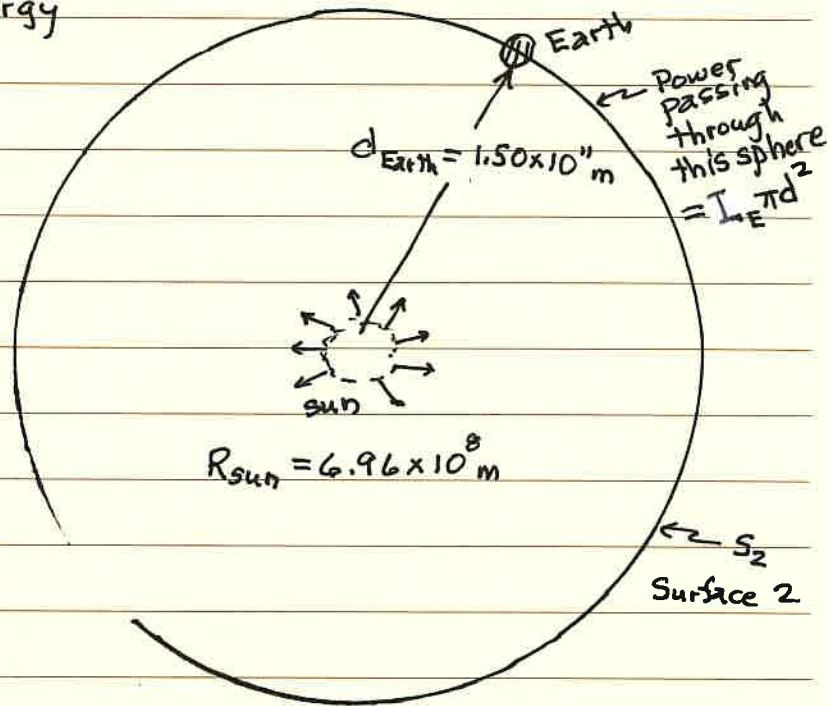 rgy
Earth
Power
passing
through
this sphere
= I_E πd²
d_Earth = 1.50×10¹¹ m
sun
R_sun = 6.96×10⁸ m
S₂
Surface 2